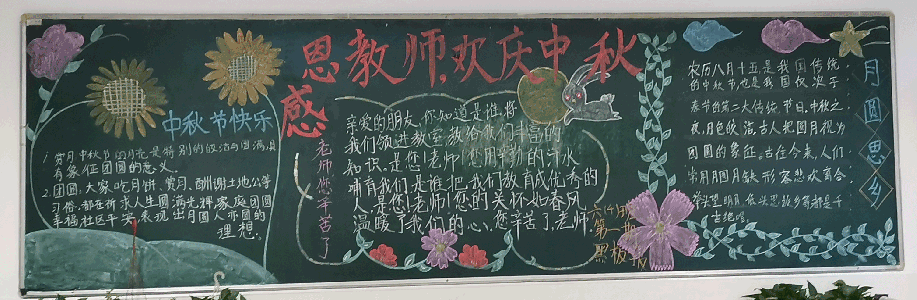 感恩教师,欢庆中秋
中秋节快乐
1.赏月:中秋节的月亮是特别的皎洁与圆满,具
有象征团圆的意义。
2.团圆:大家吃月饼、赏月、酬谢土地公等
习俗,都在祈求人生圆满光辉、家庭团圆
幸福社区平安,表现出月圆人亦圆的
理想。
老师您辛苦了
亲爱的朋友,你知道是谁将
我们领进教室,教给我们丰富的
知识。是您!老师!您用辛勤的汗水
哺育我们是谁把我们放育成优秀的
人,是您!老师!您的关怀如春风,
温暖了我们的心,您辛苦了,老师.
六(4)班
第一期
黑板报
农历八月十五是我国传统
的中秋节,也是我国仅次于
春节的第二大传统节日.中秋之
夜,月色皎洁,古人把圆月视为
团圆的象征。古往今来,人们
常用月圆月缺形容悲欢离合,
举头望明月,低头思故乡
千古绝唱。
月圆思乡